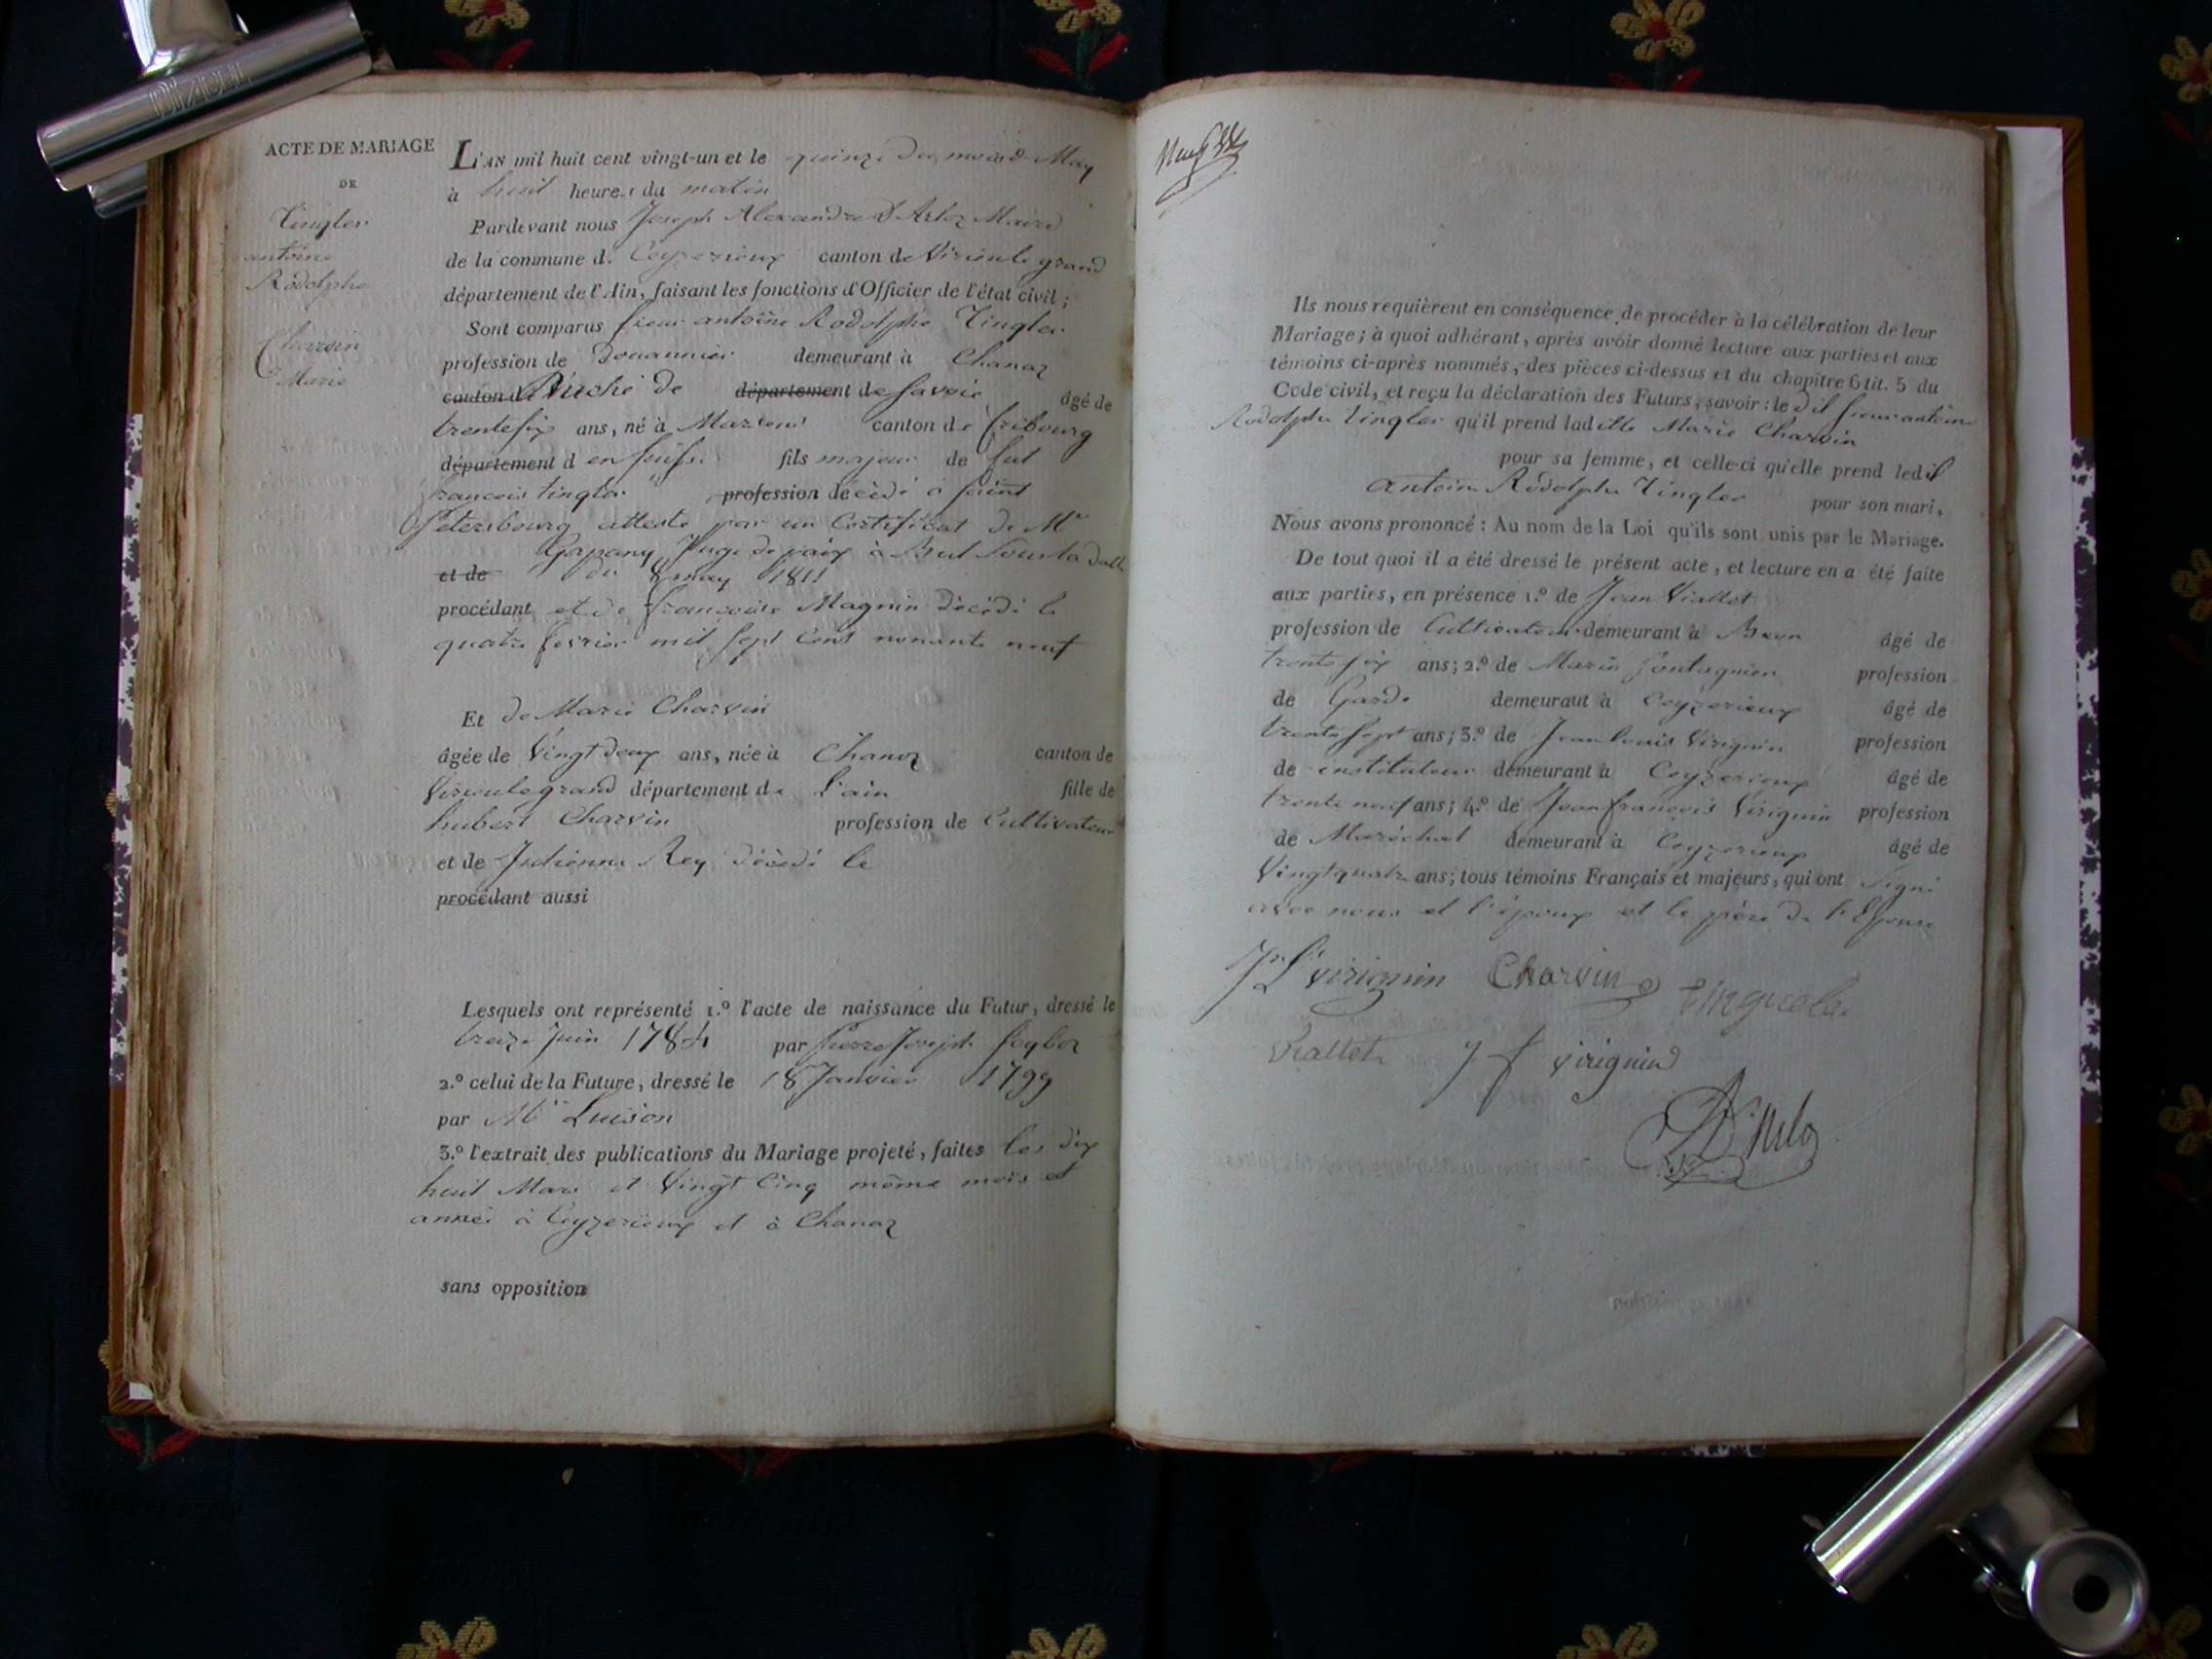 ACTE DE MARIAGE
DE
Tingler
antoine
Rodolphe
Charvin
Marie
L'AN mil huit cent vingt-un et le quinze du mois de May
à huit heures du matin
Pardevant nous Joseph Alexandre D'Arloz Maire
de la commune de Ceyzerieux canton de Virieu le grand
département de l'Ain, faisant les fonctions d'Officier de l'état civil;
Sont comparus sieur antoine Rodolphe Tingler
profession de Douannier demeurant à Chanaz
canton d Duché de département de Savoie âgé de
trente six ans, né à canton de fribourg
département d en Suisse fils majeur de fut
françois tingler profession décédé à saint
Petersbourg attesté par un Certificat de Mr
Gapany Juge de paix à sous la datte
et de du 8 may 1811
procédant et de françoise Magnin décédé le
quatre fevrier mil sept cent nonante neuf
Et de Marie Charvin
âgée de Vingt deux ans, née à Chanaz canton de
Virieulegrand département de l'ain fille de
hubert Charvin profession de Cultivateur
et de Rey décédé le
procédant aussi
Lesquels ont représenté 1.º l'acte de naissance du Futur, dressé le
treize juin 1784 par pierre Joseph
2.º celui de la Future, dressé le 18 Janvier 1799
par Mr Luison
3.º l'extrait des publications du Mariage projeté, faites les dix
huit Mars et Vingt Cinq même mois et
année à Ceyzerieux et à Chanaz
sans opposition
Ils nous requièrent en conséquence de procéder à la célébration de leur
Mariage; à quoi adhérant, après avoir donné lecture aux parties et aux
témoins ci-après nommés, des pièces ci-dessus et du chapitre 6 tit. 5 du
Code civil, et reçu la déclaration des Futurs, savoir: le dit sieur antoine
Rodolphe Tingler qu'il prend ladite Marie Charvin
pour sa femme, et celle-ci qu'elle prend ledit
Antoine Rodolphe Tingler pour son mari,
Nous avons prononcé: Au nom de la Loi qu'ils sont unis par le Mariage.
De tout quoi il a été dressé le présent acte, et lecture en a été faite
aux parties, en présence 1.º de Jean Viallet
profession de Cultivateur demeurant à Beon âgé de
trente six ans; 2.º de Marin profession
de Garde demeurant à Ceyzerieux âgé de
trente sept ans; 3.º de Jean louis Virignin profession
de instituteur demeurant à Ceyzerieux âgé de
trente neuf ans; 4.º de Jean françois Virignin profession
de Maréchal demeurant à Ceyzerieux âgé de
Vingt quatre ans; tous témoins Français et majeurs, qui ont signé
avec nous et l'époux et le père de l'Epouse
J L virignin Charvin
Viallet J f virignin
D'Arloz